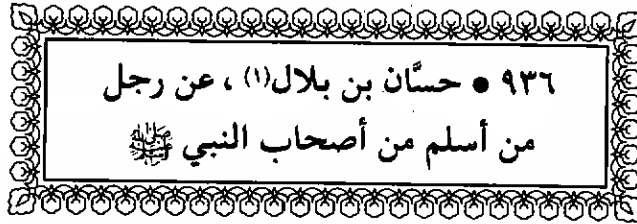 ٩٣٦ ● حسَّان بن بلال(١) ، عن رجل
من أسلم من أصحاب النبي ﷺ